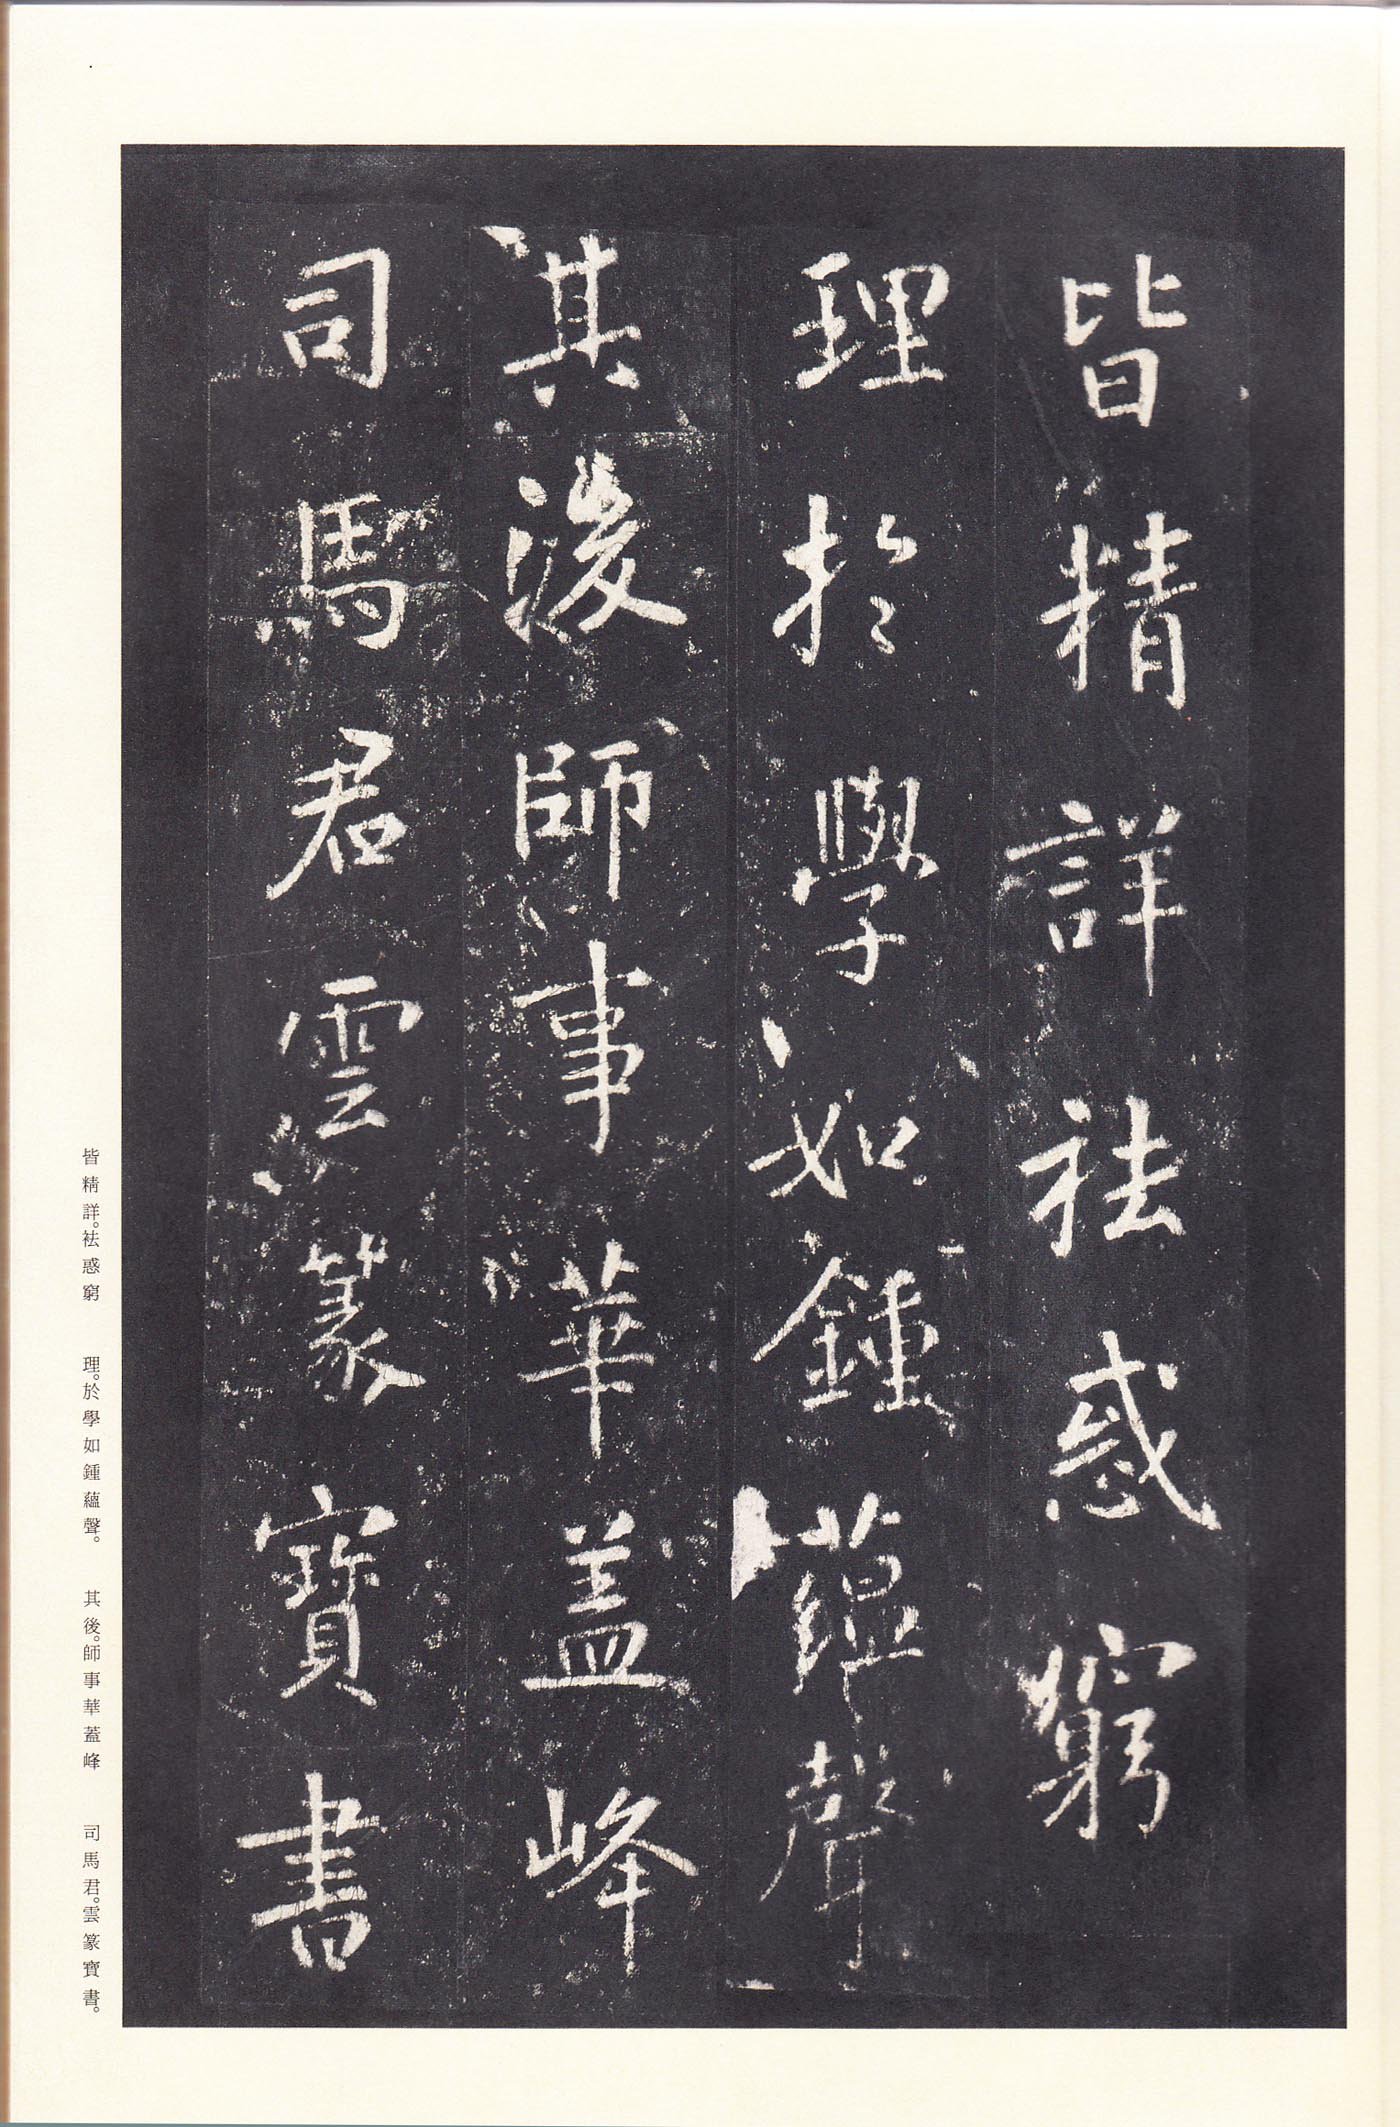 皆精詳祛惑窮
理於學如鍾蘊聲
其後師事華蓋峰
司馬君雲篆寶書
皆精詳。祛惑窮　理。於學如鍾蘊聲。　其後。師事華蓋峰　司馬君。雲篆寶書。